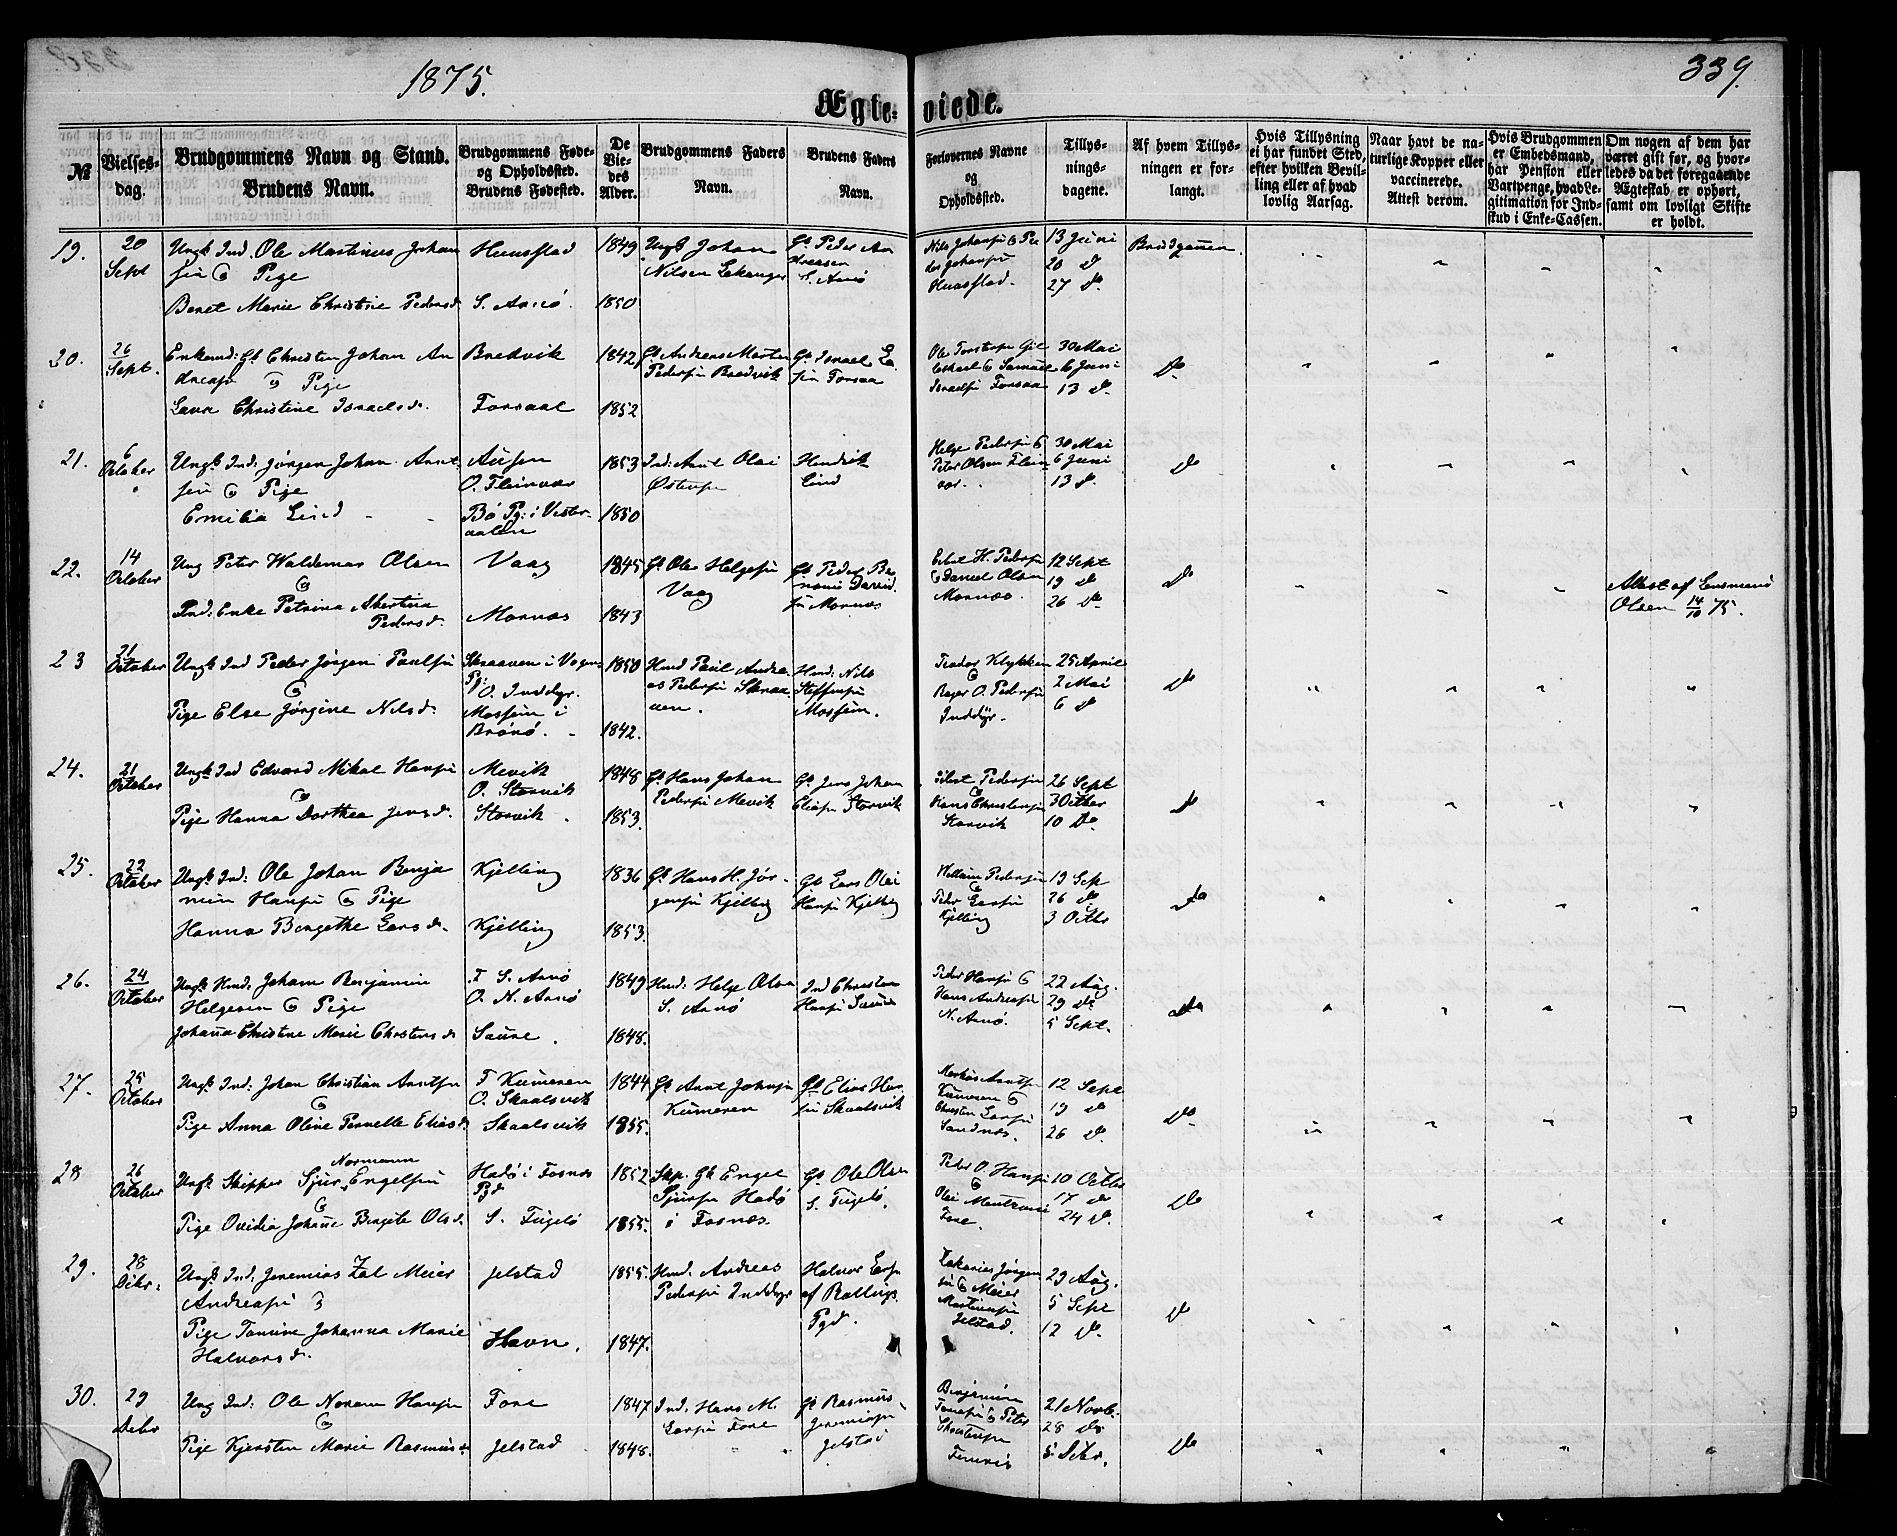 1875.
339.
Ægte-viede.
№
Vielses-dag.
Brudgommens Navn og Stand.
Brudens Navn.
Brudgommens Føde- og Opholdssted.
Brudens Fødested.
De Vie-des Alder.
Brudgommens Faders Navn.
Brudens Faders Navn.
Forlovernes Navne og Opholdssted.
Tillys-nings-dagene.
Af hvem Tillys-ningen er for-langt.
Hvis Tillysning ei har fundet Sted, efter hvilken Bevil-ling eller af hvad lovlig Aarsag.
Naar havt de na-turlige Kopper eller vaccinerede. Attest derom.
Hvis Brudgommen er Embedsmand, har Pension eller Vartpenge, hvad Le-gitimation for Ind-skud i Enke-Cassen.
Om nogen af dem har været gift før, og hvor-ledes da det foregaaende Ægteskab er ophørt, samt om lovligt Skifte er holdt.
19. 20 Sept
Ungk Ind. Ole Martinus Johan
sen & Pige
Beret Marie Christine Pedersd.
Huusstad
S. Arnö.
1849
1850
Ungk Johan
Nilsen Lekanger
Gb. Peder An
dreasen
S. Arnö
Nils Johansen & Pe
der Johansen
Huusstad.
13 Juni
20 do
27 do.
Brudgomen.
20. 26 Sept.
Enkemd: Gb Christen Johan An
dreasen & Pige
Christine Israelsd.
Bredvik
Forsaae
1842
1852
Gb. Andreas Morten
Pedersen Bredvik
Gb. Israel
Forsaa
Samuel
Israelsen Forsaa
30 Mai
6 Juni
13 do.
do
21. 6 October
Ungk Ind: Jörgen Johan Arnt
sen & Pige
Emilia Lind
O. Fleinvær
Bö Pg: i Vester-
aalen
1853
1850
Ind: Arnt Olai
Hendrik
Lind
Helge Pedersen &
Peter Olsen Flein
vær.
30 Mai
6 Juni
13 do.
do
22. 14 October
Ung Peter Waldemar Olsen
&
Ind. Enke Petrina Albertina
Pedersd.
Vaag
Mornæs
1845
1843
Gb Ole Helgesen
Vaag
Gb Peder
sen Mornæs
H. Pedersen
& Daniel Olsen
Mornæs.
12 Sept
19 do
26 do.
do
Attest af Lensmand
Olsen 14/10 75.
23 21 October
Ungk Ind Peder Jörgen Paulsen
&
Pige Else Jörgine Nilsd.
Skraaven i Vagen
Pg:
O. Inddyr.
Mosseim i
Brönö.
1850
1842.
Hmd Paul Andre
as Pedersen Skraa
ven.
Hmd: Nils
Steffensen
Mosseim.
Teodor Klykken
&
O. Pedersen
Inddyr.
25 April
2 Mai
6 do
do
24. 21 October
Ungk Ind Edvard Mikal Hansen
&
Pige Hanna Dorthea Jensd.
Mevik
O. Storvik
Storvik
1848
1853.
Gb Hans Johan
Pedersen Mevik
Gb. Jens Johan
Eliasen Storvik
Pedersen
&
Hans Christensen
Storvik
26 Sept
3 Octber
10 do.
do
25. 22 October
Ungk Ind: Ole Johan Benja
min Hansen & Pige
Hanna Bergethe Larsd.
Kjelling
Kjelling
1836
1853.
Gb Hans H. Jör-
gensen Kjelling
Gb Lars Olai
Hansen Kjelling
Pedersen
&
Peder Larsen
Kjelling
19 Sep
26 do
3 Octbr
do
26. 24 October
Ungk Hmd. Johan Benjamin
Helgesen & Pige
Johanna Christine Marie Christensd.
F S. Arnö
O. N. Arnö
Saura.
1849
1848.
Hmd. Helge Olsen
S. Arnö
Ind Christen
Hansen Saura
Peder Hansen &
Hans Andreasen
N. Arnö.
22 Aug.
29 do
5 Sept.
do
27. 25 October
Ungk Ind: Johan Christian Arntsen
&
Pige Anna Oline Pernelle Eliasd.
F Kumeren
O. Skaalsvik
Skaalsvik
1844
1855.
Gb Arnt Johnsen
Kumeren
Gb Elias Han
sen Skaalsvik
Markus Arntsen
Kumeren &
Christen Larsen
Sandnæs.
12 Sept
19 do
26 do.
do
28 26 October
Ungk Skipper Sjur Normann Engelsen
&
Pige Ovidia Johanne Bergite Olsd.
Hadö i Fosnæs
Pgd
S. Fugelö
1852
1855.
Skp. Gb Engel
Sjursen Hadö
i Fosnæs.
Gb Ole Olsen
S. Fugelö.
Peder O. Hansen
&
Olai
Fore.
10 Octbr
17 do
24 do.
do
29. 28 Decbr.
Ungk Ind. Jeremias Zal Meier
Andreasen &
Pige Tomine Johanna Marie
Halvorsd.
Jelstad
Havn.
1855.
1847.
Hmd. Andreas
Pedersen Inddyr
Halvor Larsen
af
Pgd.
Zakarias Jörgen
sen & Meier
Martinusen
Jelstad.
29 Aug.
5 Sept
12 do.
do
30. 29 Decbr
Ung Ind: Ole Norum Hansen
&
Pige Kjersten Marie Rasmusd.
Fore
Jelstad
1847
1848.
Ind. Hans M.
Larsen Fore
Gb Rasmus
Jeremiasen
Jelstad
Benjamin
& Peter
Christensen
21 Novb.
28 do
5 Decbr.
do